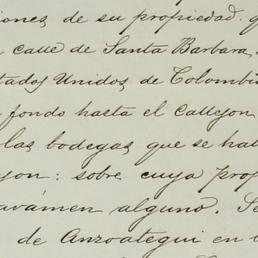 iones de su propiedad. q
calle de Santa Barbara,
tados Unidos de Colombi
fondo hasta el callejon
las bodegas que se hal
jon: sobre cuya prop
avámen alguno. Se
de Anzoategui en l